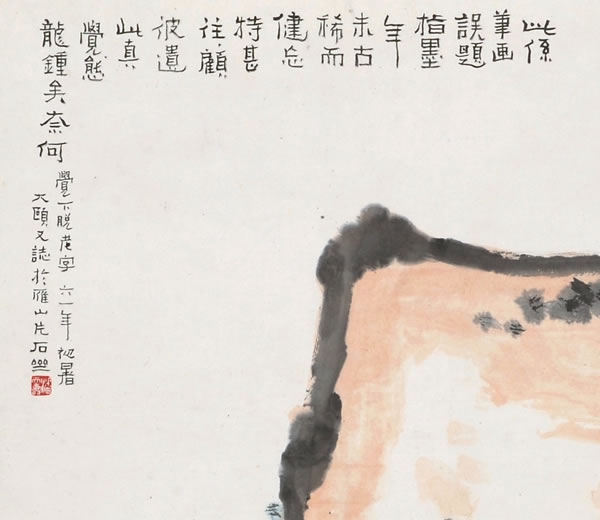 此係
筆画
誤題
指墨
年
未古
稀而
健忘
特甚
往顧
彼遺
此真
覺態
龍鍾矣奈何
覺下脱老字 六一年初暑
大頤又誌於雁山片石㘴